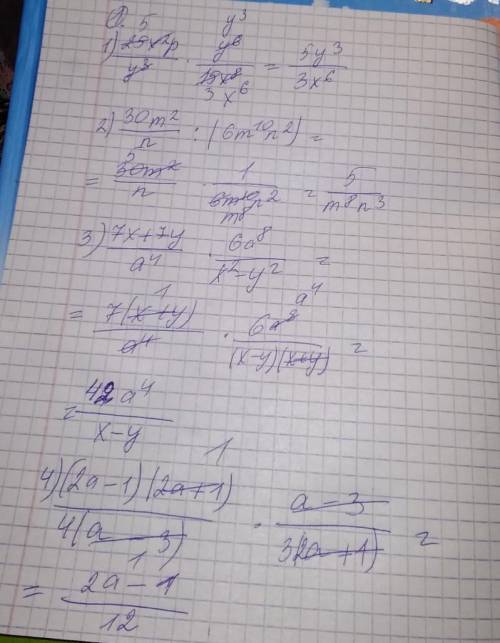 5 y³
1) 25x²p/y³ · y⁶/15x⁸ = 5y³/3x⁶
3 x⁶
2) 30m²/n : (6m¹⁰n²) =
5 1
= 30m²/n · 1/6m¹⁰n² = 5/m⁸n³
m⁸
3) 7x+7y/a⁴ · 6a⁸/x²-y² =
1 a⁴
= 7(x+y)/a⁴ · 6a⁸/(x-y)(x+y) =
= 42a⁴/x-y
1
4) (2a-1)(2a+1)/4(a-3) · a-3/3(2a+1) =
1
= 2a-1/12